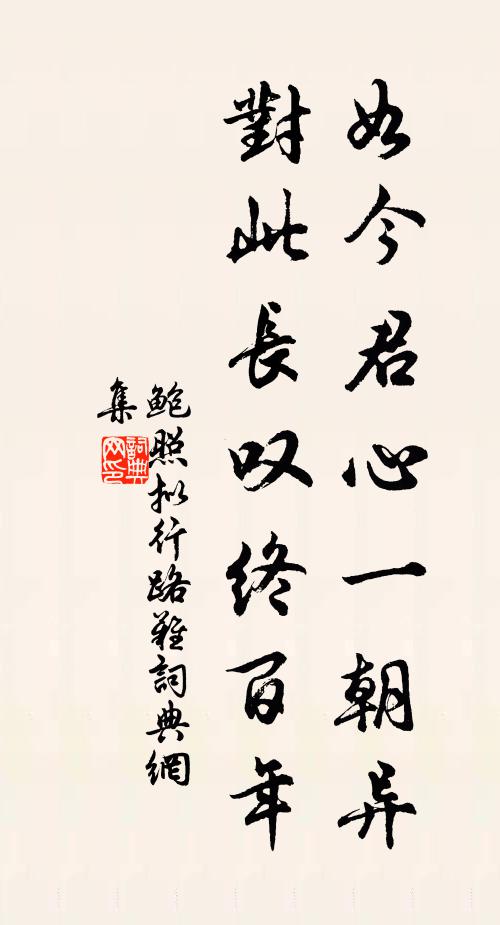 如今君心一朝异
對此長叹終百年
鲍照拟行路難詞典網
集
詞典
网印